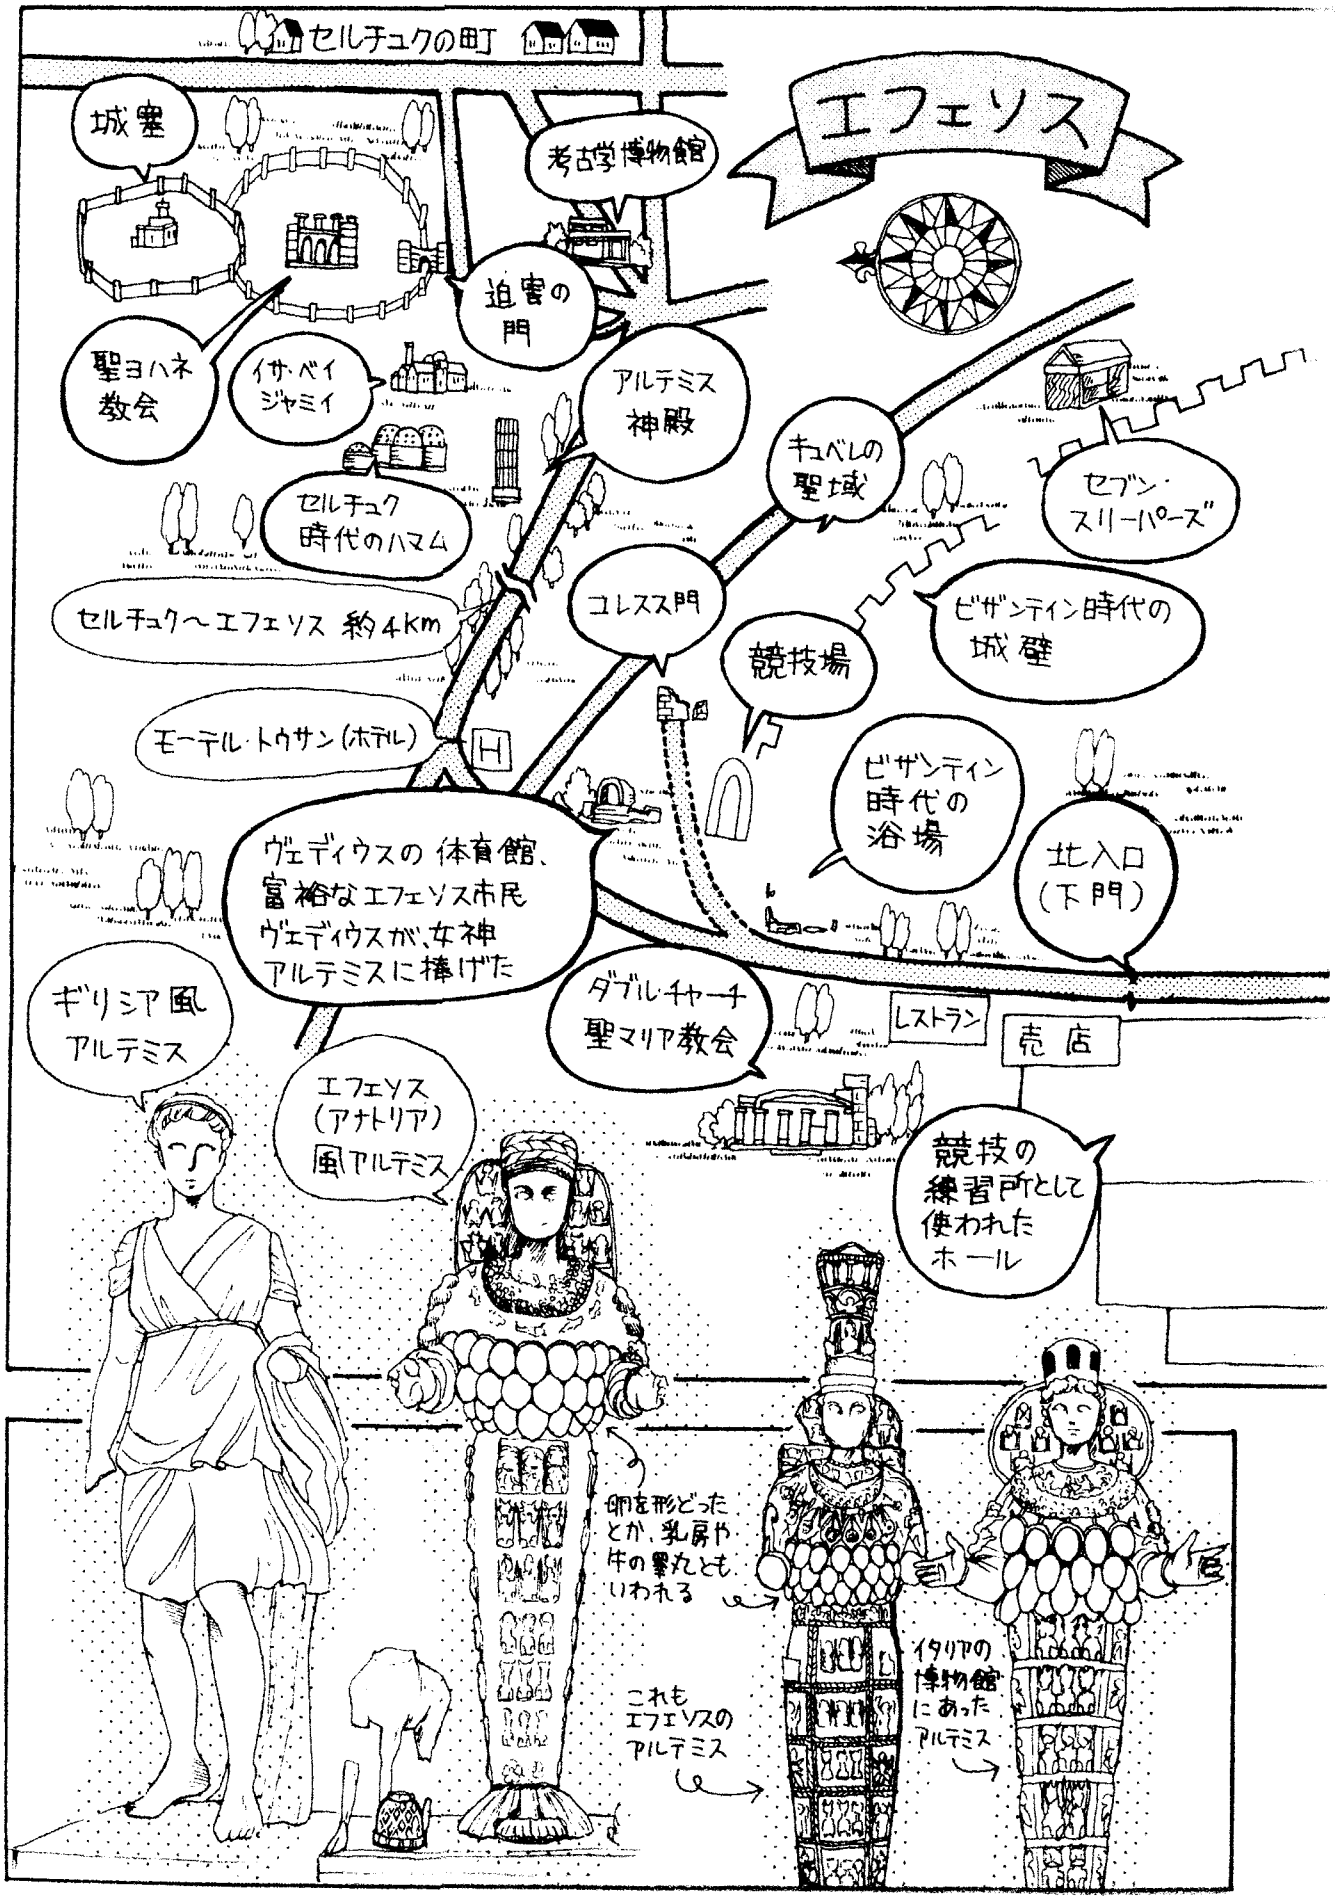 セルチュクの町
エフェソス
城塞
考古学博物館
迫害の
門
聖ヨハネ
教会
イサ・ベイ
ジャミイ
アルテミス
神殿
キュベレの
聖域
セブン・
スリーパーズ
セルチュク
時代のハマム
セルチュク〜エフェソス 約4km
コレスス門
ビザンティン時代の
城壁
競技場
モーテル・トウサン(ホテル)
H
ビザンティン
時代の
浴場
北入口
(下門)
ヴェディウスの体育館、
富裕なエフェソス市民
ヴェディウスが、女神
アルテミスに捧げた
ギリシア風
アルテミス
ダブル・チャーチ
聖マリア教会
レストラン
売店
エフェソス
(アナトリア)
風アルテミス
競技の
練習所として
使われた
ホール
卵を形どった
とか、乳房や
牛の睾丸とも
いわれる
これも
エフェソスの
アルテミス
イタリアの
博物館
にあった
アルテミス